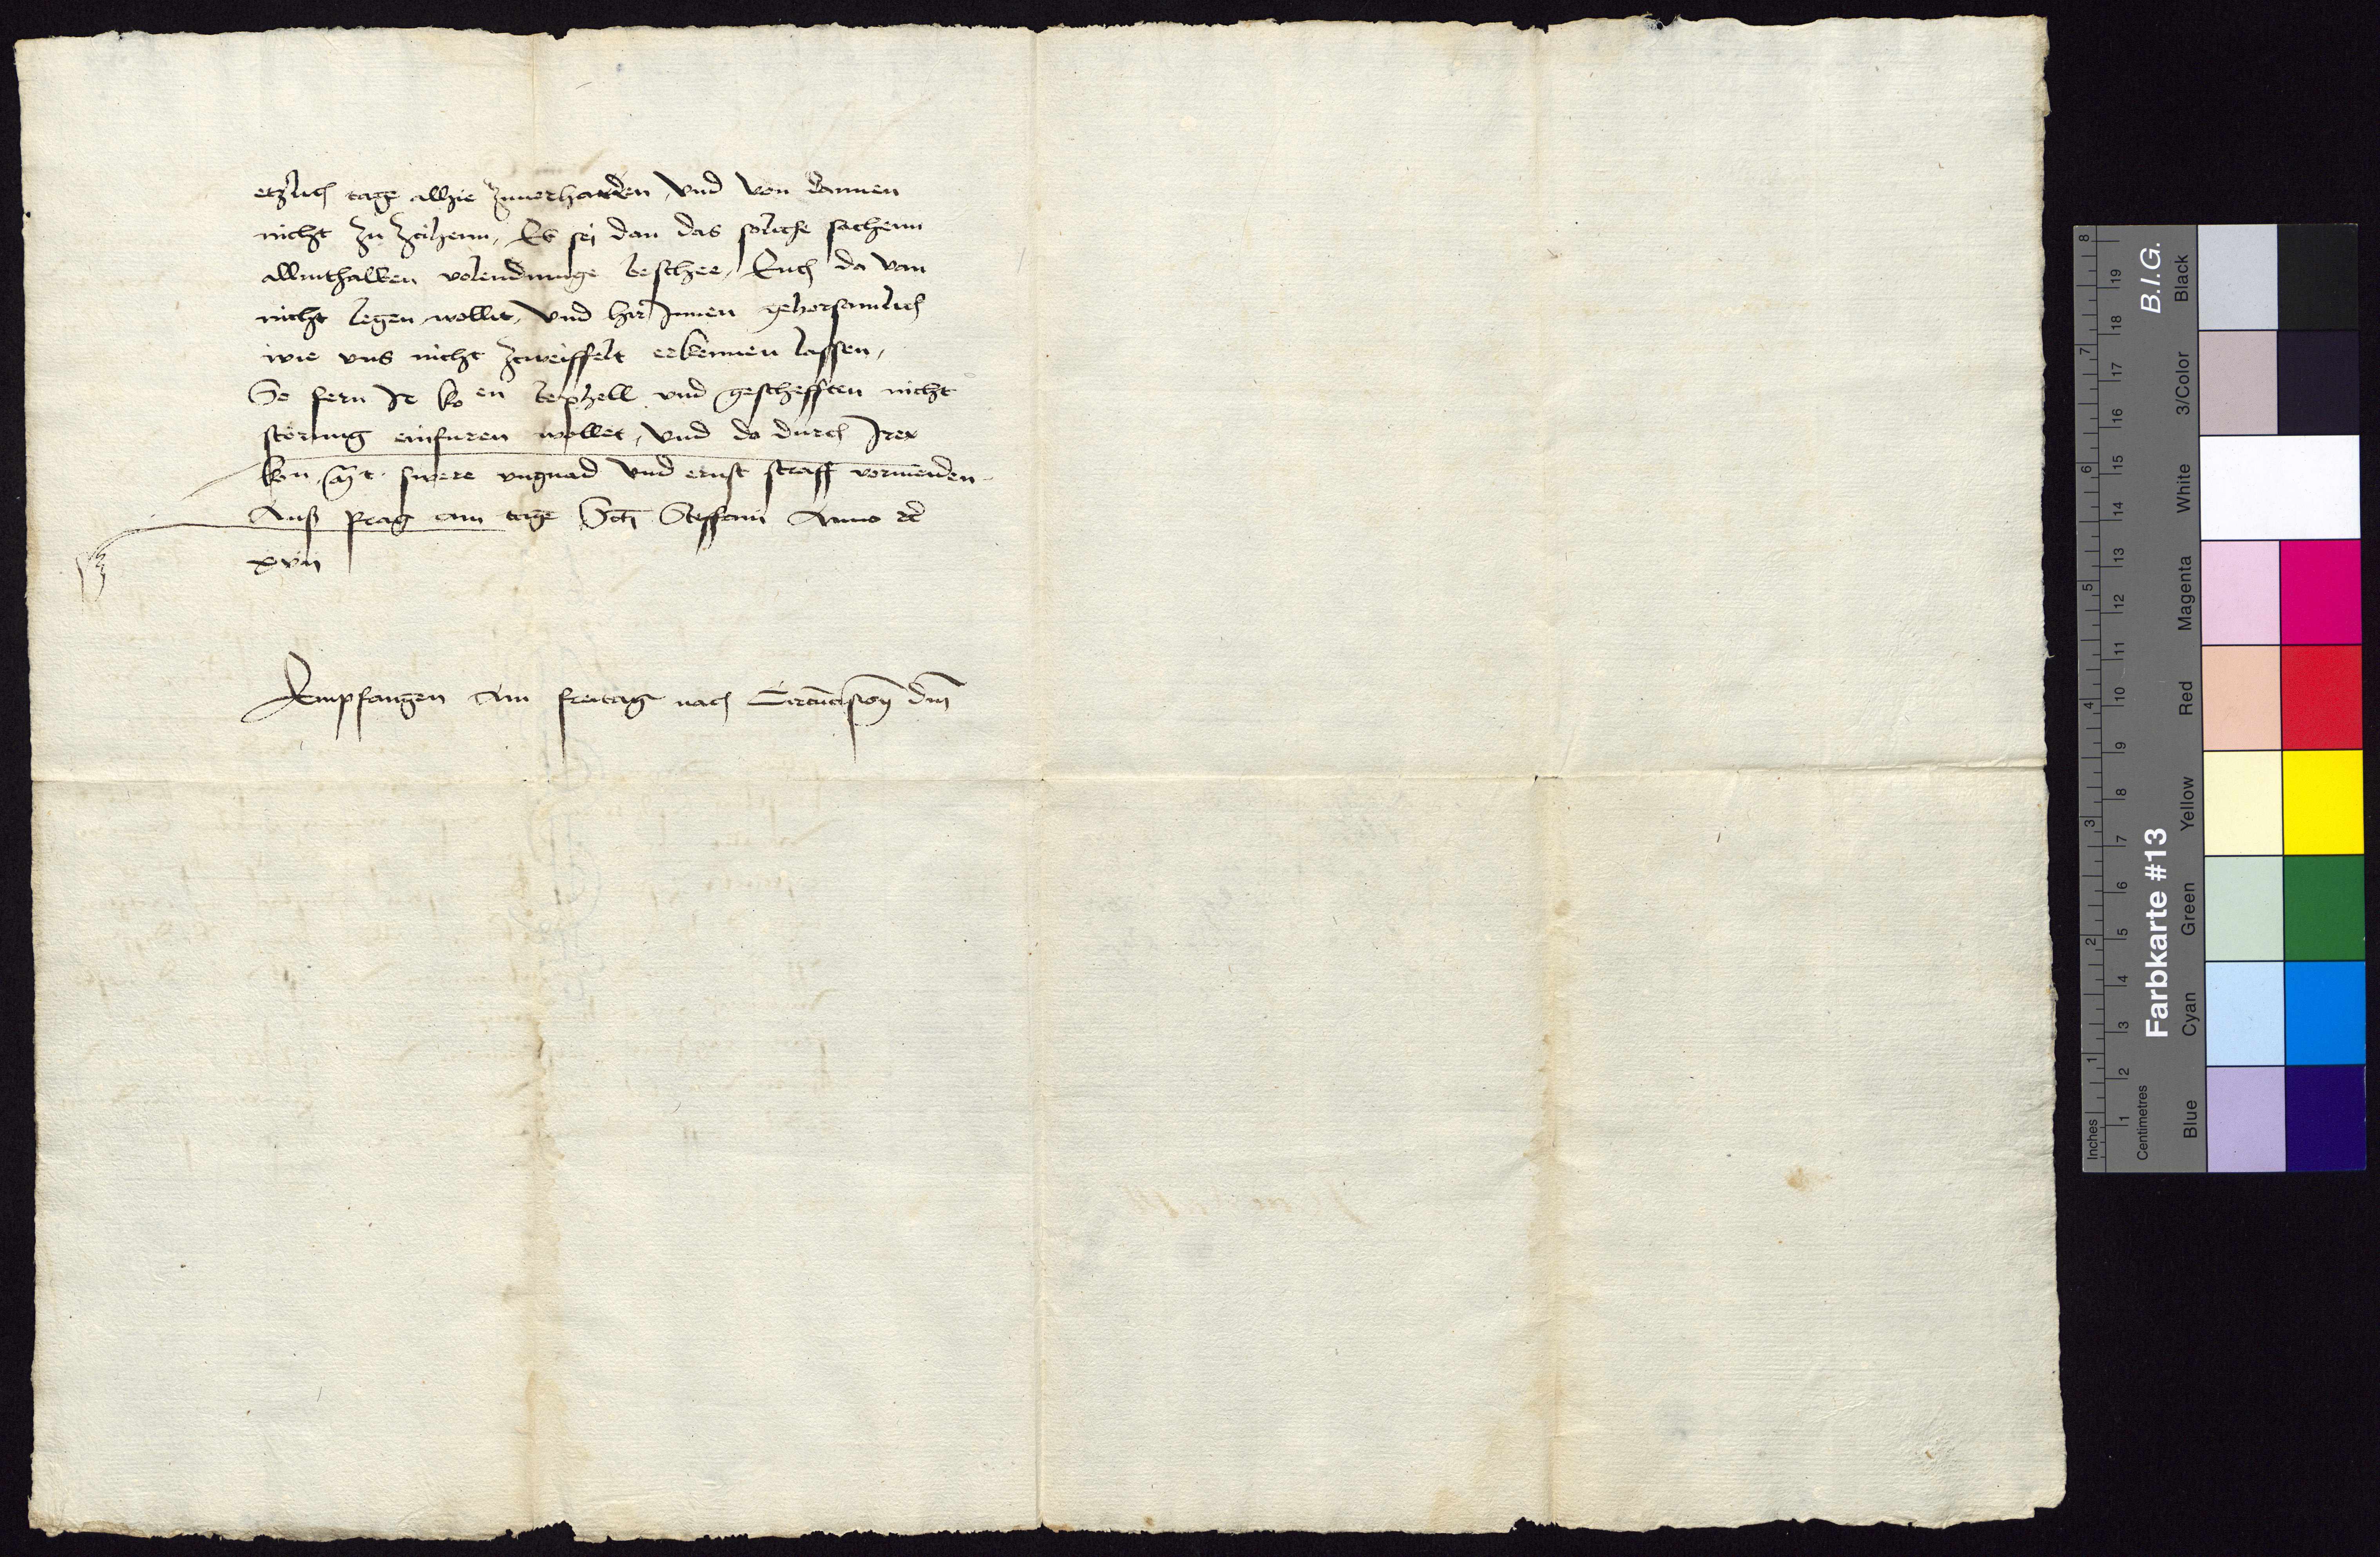 etzlich tage allhie zuuorharden, Vnd von dannen
nicht zu zcihenn, Es sej dan das soliche sachenn
allinthalben volendunge beschee, Euch da van
nicht legen wollit, Vnd hir Innen gehorsamlich
wie vns nicht zcweiffelt erkennen lassen,
So fern Ir ko en bephell vnd geschefften nicht
storung einfuren wollet, Vnd da durch Irer
kon mt swere vngnad Vnd ernst straff vormeiden
Auß prag am tage Scti Steffani Anno etc
xvii
Empfangen Am freitag nach Circūcisionis dnī
Inches
Centimetres
1 2 3 4 5 6 7 8
1 2 3 4 5 6 7 8 9 10 11 12 13 14 15 16 17 18 19
Farbkarte #13
B.I.G.
Blue
Cyan
Green
Yellow
Red
Magenta
White
3/Color
Black